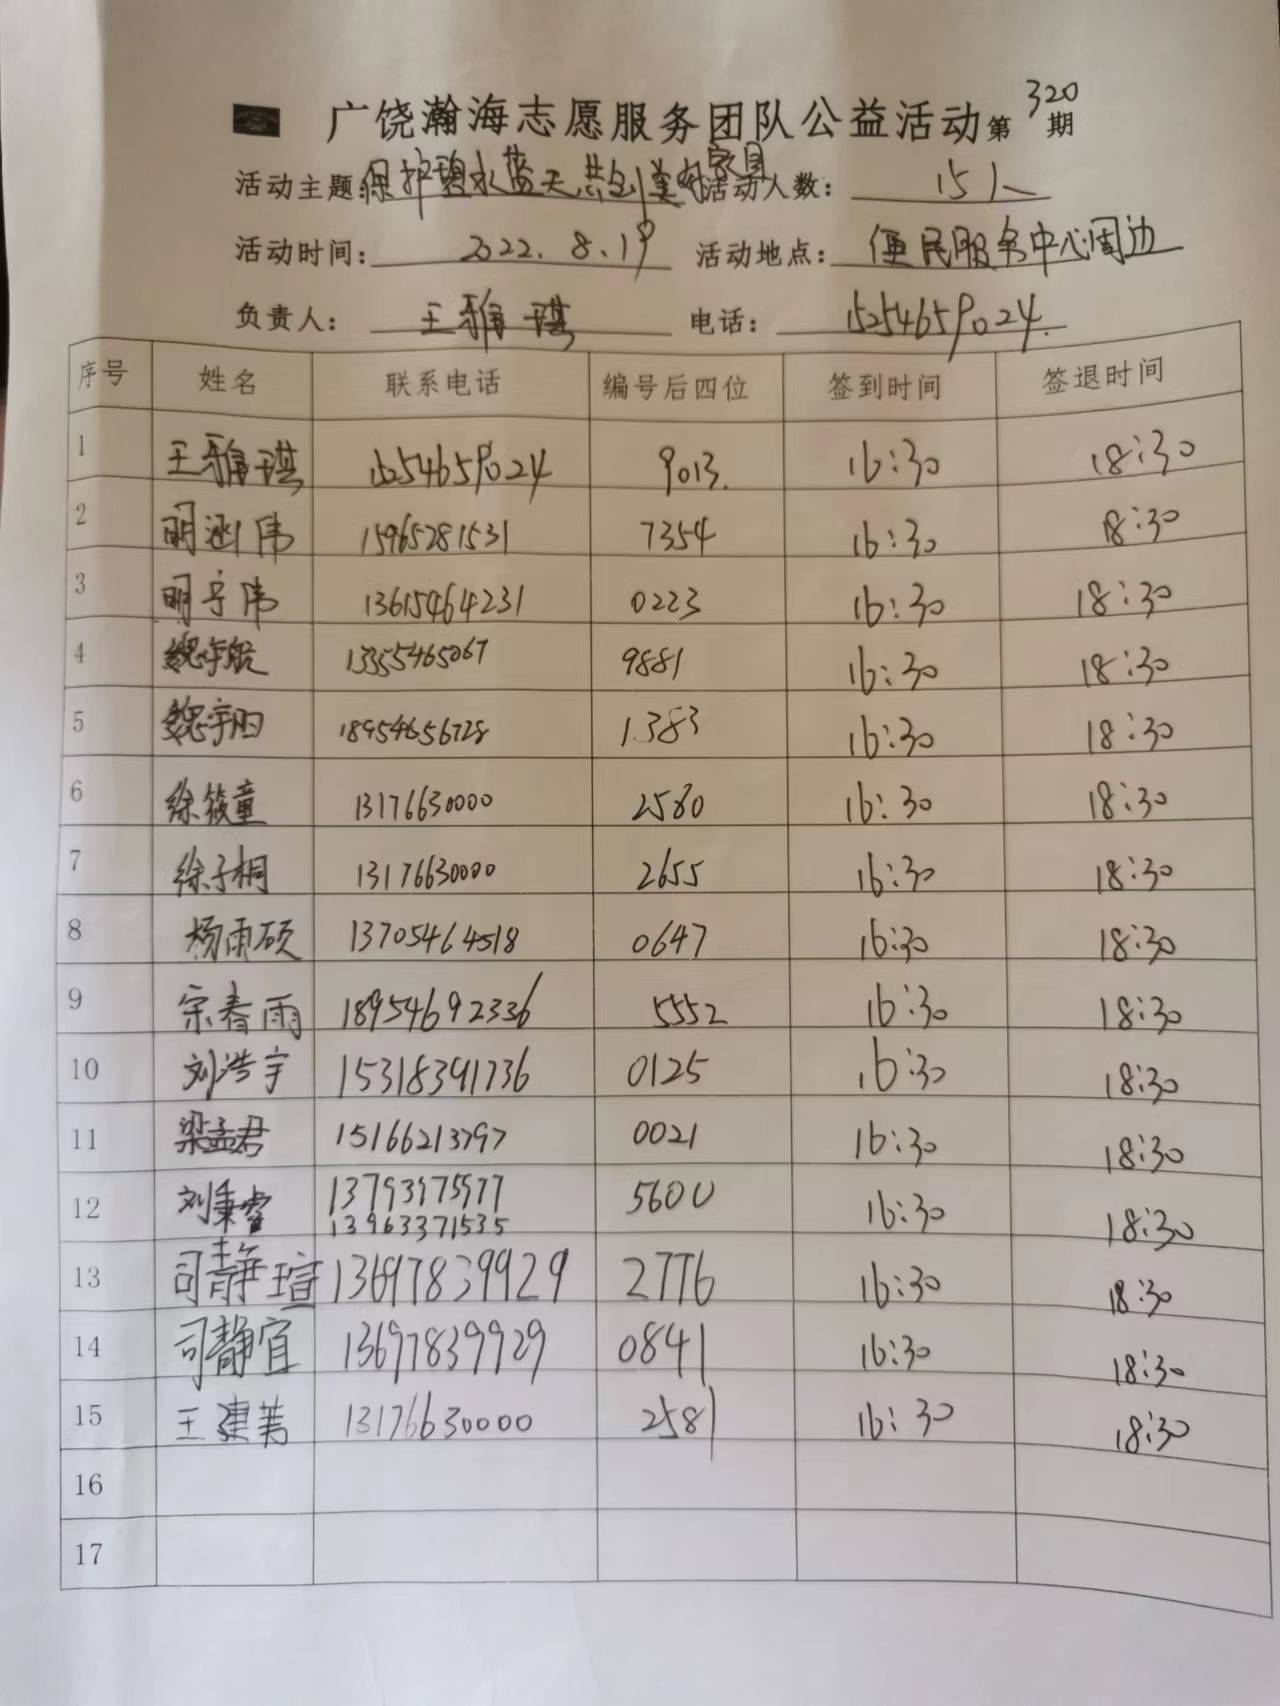 广饶瀚海志愿服务团队公益活动第320期
活动主题:保护碧水蓝天共创美好家园 活动人数: 15人
活动时间: 2022.8.19 活动地点: 便民服务中心周边
负责人: 王雅琪 电话: 15254659024.
序号 姓名 联系电话 编号后四位 签到时间 签退时间
1 王雅琪 15254659024 9013. 16:30 18:30
2 明涵伟 15965281531 7354 16:30 18:30
3 明宇伟 13615464231 0223 16:30 18:30
4 魏宇航 13355465067 9881 16:30 18:30
5 魏宇 18954656728 1383 16:30 18:30
6 徐筱童 13176630000 2580 16:30 18:30
7 徐子桐 13176630000 2655 16:30 18:30
8 杨雨硕 13705464518 0647 16:30 18:30
9 宗春雨 18954692336 5552 16:30 18:30
10 刘浩宇 15318391736 0125 16:30 18:30
11 梁孟君 15166213797 0021 16:30 18:30
12 刘秉睿 13793975977 5600 16:30 18:30
13963371535
13 司静瑄 13697839929 2776 16:30 18:30
14 司静宜 13697839929 0841 16:30 18:30
15 王建菁 13176630000 2581 16:30 18:30
16
17